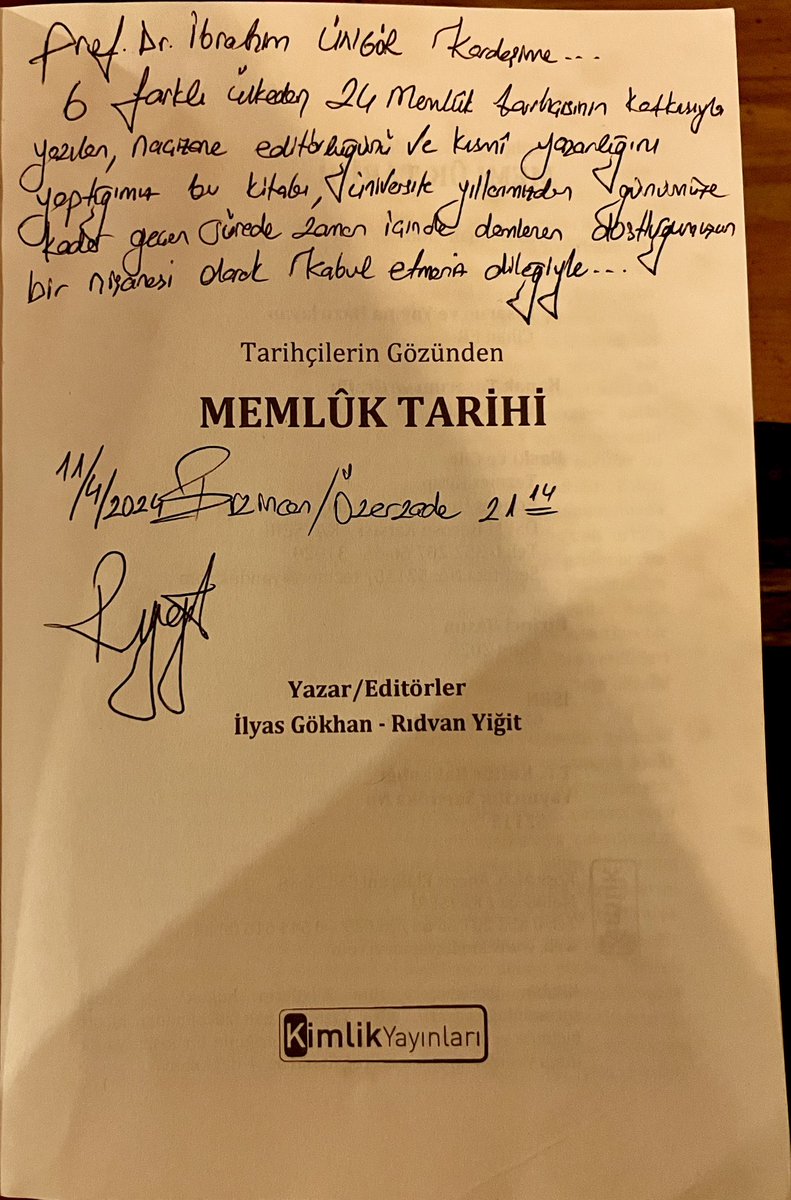 Prof. Dr. İbrahim ÜNGÖR Kardeşime...
6 farklı ülkeden 24 Memlûk tarihçisinin katkısıyla
yazılan, naçizane editörlüğünü ve kısmî yazarlığını
yaptığımız bu kitabı, üniversite yıllarımızdan günümüze
kadar geçen sürede zaman içinde demlenen dostluğumuzun
bir nişanesi olarak kabul etmeniz dileğiyle...
Tarihçilerin Gözünden
MEMLÛK TARİHİ
11/4/2024 Erzincan/Özerzade 21 14
Yazar/Editörler
İlyas Gökhan - Rıdvan Yiğit
Kimlik Yayınları